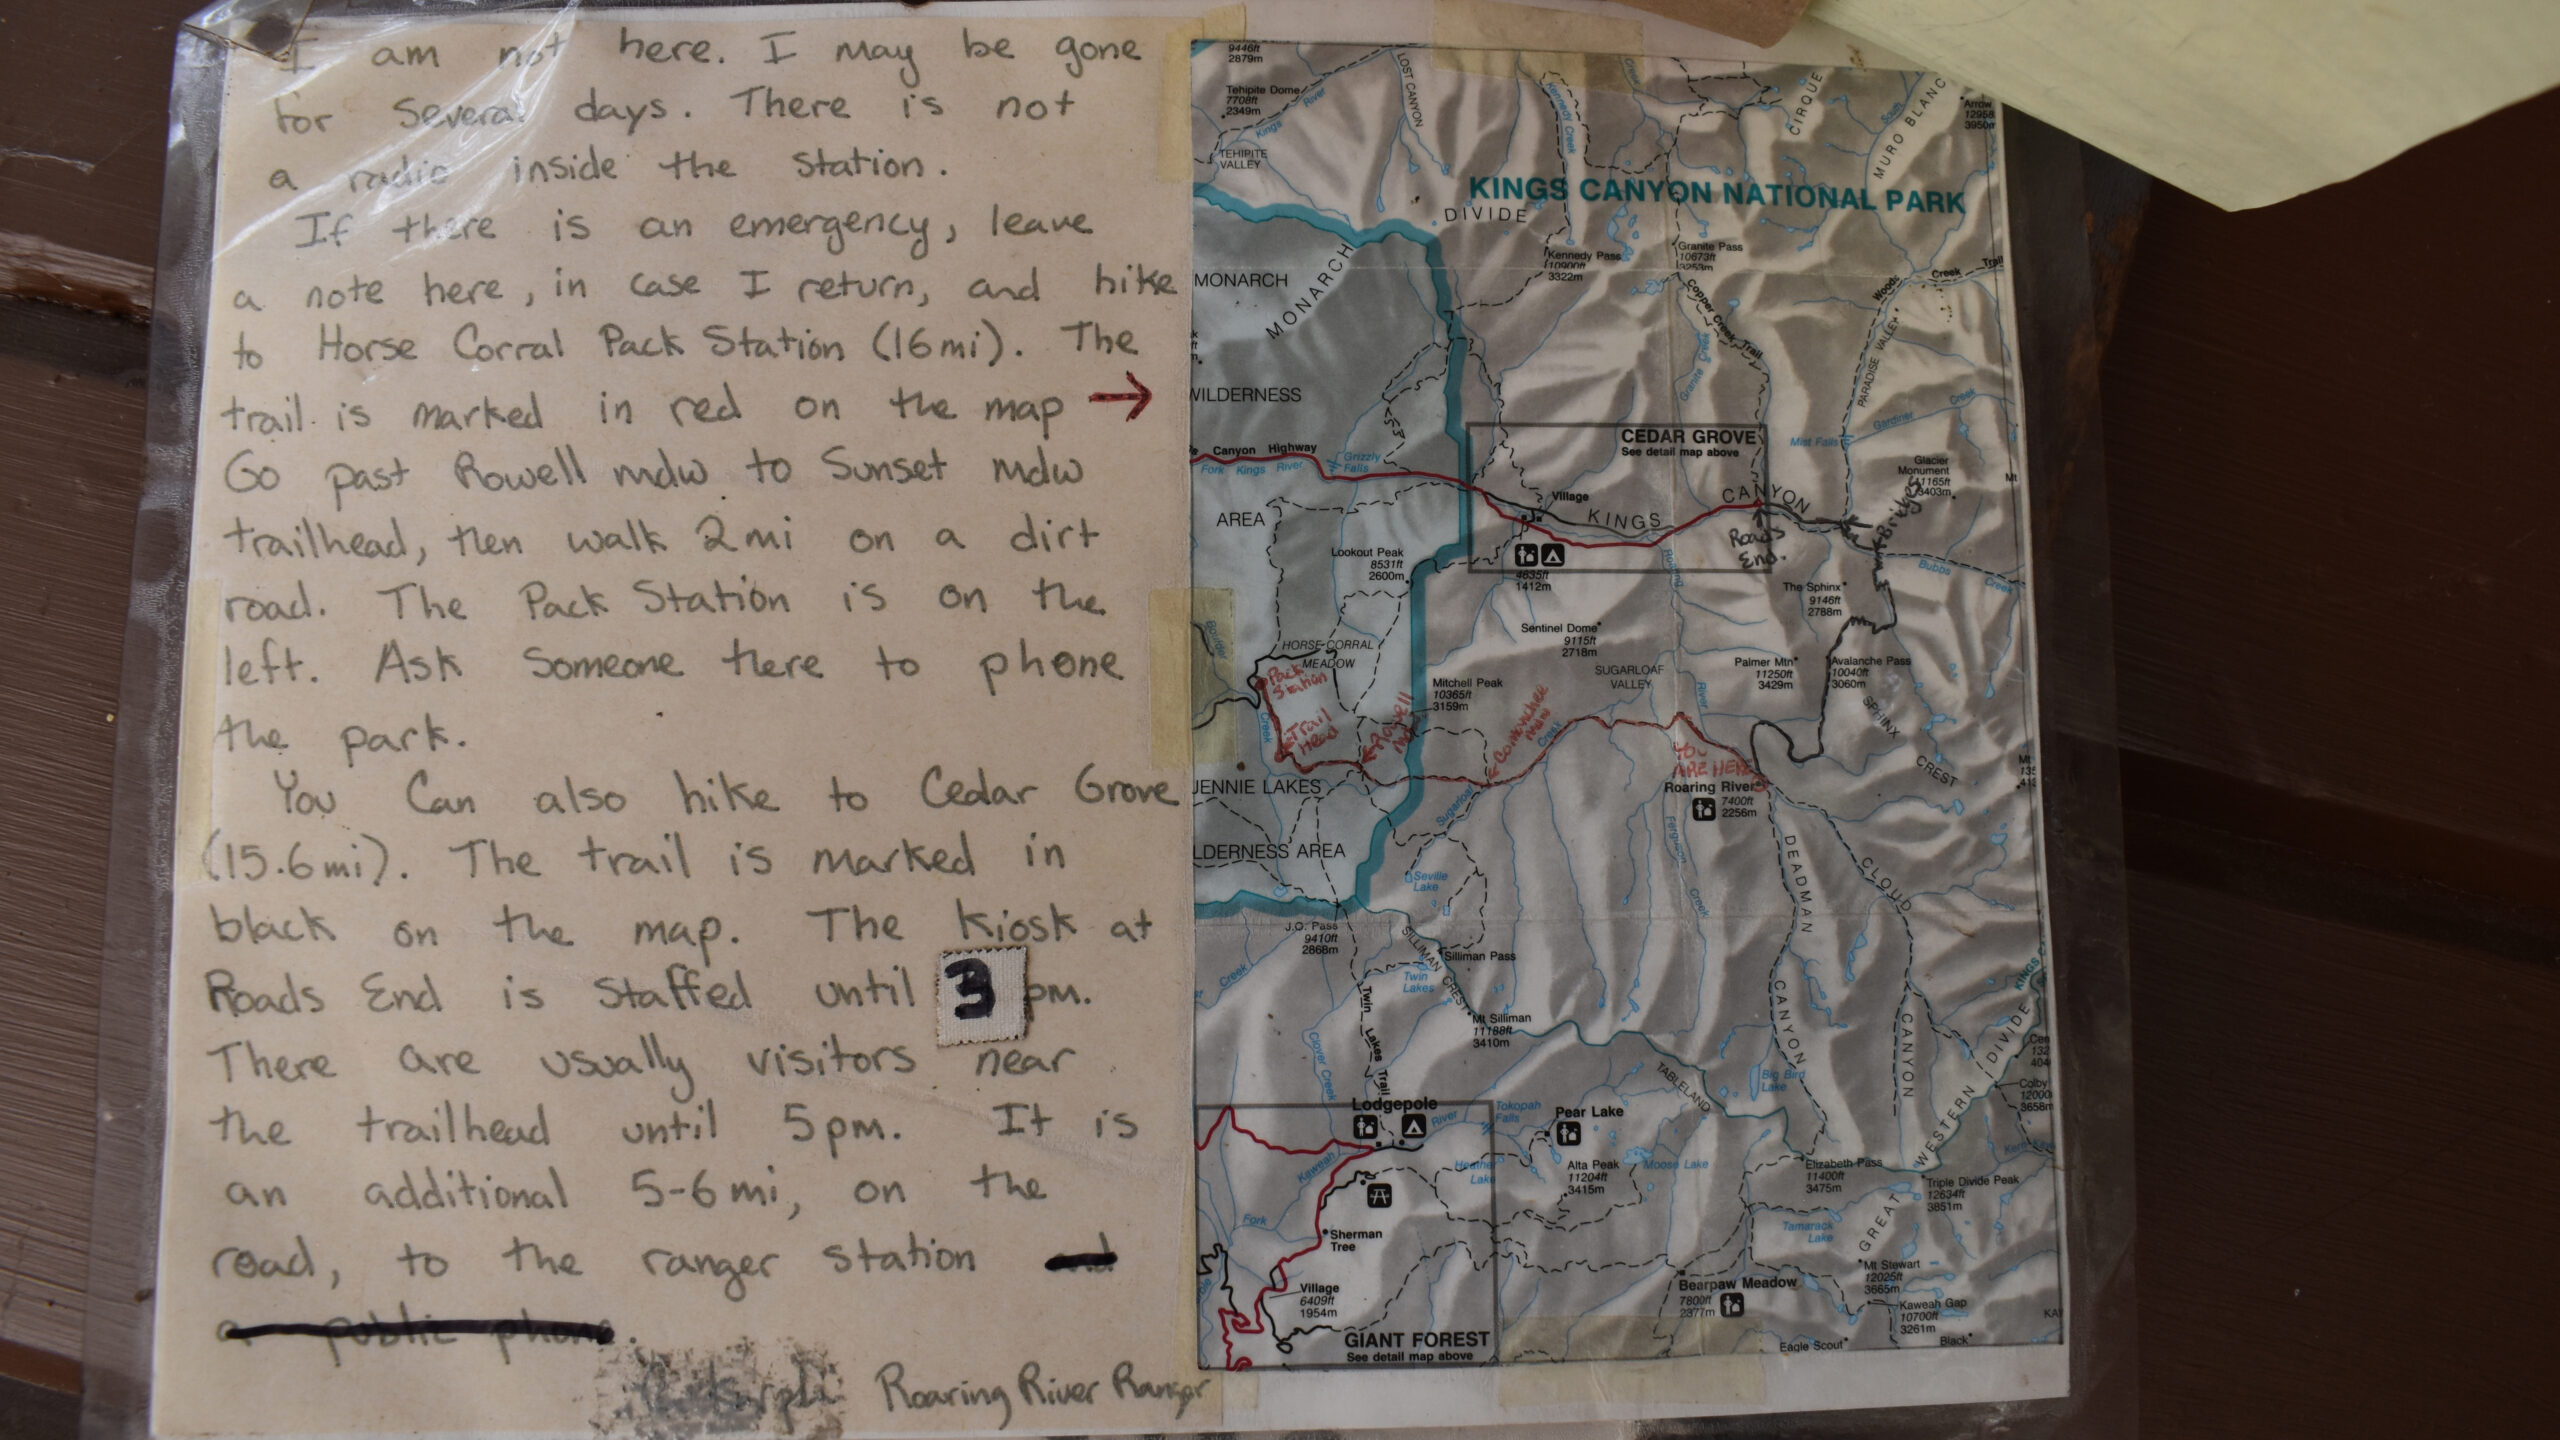 I am not here. I may be gone
for several days. There is not
a radio inside the station.
If there is an emergency, leave
a note here, in case I return, and hike
to Horse Corral Pack Station (16mi). The
trail is marked in red on the map →
Go past Rowell mdw to Sunset mdw
trailhead, then walk 2mi on a dirt
road. The Pack Station is on the
left. Ask someone there to phone
the park.
You can also hike to Cedar Grove
(15.6mi). The trail is marked in
black on the map. The Kiosk at
Roads End is staffed until 3 pm.
There are usually visitors near
the trailhead until 5pm. It is
an additional 5-6mi, on the
road, to the ranger station and
a public phone.
Roaring River Ranger
9446ft
2879m
Tehipite Dome
7708ft
2349m
Kings River
TEHIPITE
VALLEY
LOST CANYON
Kennedy Creek
Creek
CIRQUE
South
MURO BLANC
Arrow
12958
3950m
KINGS CANYON NATIONAL PARK
MONARCH DIVIDE
Kennedy Pass
10900ft
3322m
Granite Pass
10673ft
3253m
Woods Creek Trail
MONARCH
WILDERNESS
AREA
Copper Creek Trail
Granite Creek
PARADISE VALLEY
Gardiner Creek
Mist Falls
CEDAR GROVE
See detail map above
Canyon Highway
Fork Kings River
Grizzly
Falls
Glacier
Monument
11165ft
3403m
Mt
Village
KINGS CANYON
Roads
End
Bridges
Lookout Peak
8531ft
2600m
4635ft
1412m
Roaring
River
Bubbs Creek
The Sphinx
9146ft
2788m
Sentinel Dome
9115ft
2718m
Boulder
Creek
HORSE CORRAL
MEADOW
Pack
Station
Trail
Head
Rowell
mdw
Mitchell Peak
10365ft
3159m
Comanchee
mdw
SUGARLOAF
VALLEY
Palmer Mtn
11250ft
3429m
Avalanche Pass
10040ft
3060m
SPHINX
CREST
YOU
ARE HERE
Roaring River
7400ft
2256m
Sugarloaf
Creek
JENNIE LAKES
LDERNESS AREA
Ferguson Creek
DEADMAN CANYON
CLOUD CANYON
Seville
Lake
J.O. Pass
9410ft
2868m
SILLIMAN CREST
Silliman Pass
Twin
Lakes
Creek
Twin Lakes Trail
Mt Silliman
11188ft
3410m
Clover Creek
TABLELAND
Big Bird
Lake
GREAT WESTERN DIVIDE
KINGS
Colby
12000
3658m
Lodgepole
River
Tokopah
Falls
Pear Lake
Kaweah
Fork
Heather
Lake
Alta Peak
11204ft
3415m
Moose Lake
Elizabeth Pass
11400ft
3475m
Triple Divide Peak
12634ft
3851m
Tamarack
Lake
Sherman
Tree
Mt Stewart
12025ft
3665m
Village
6409ft
1954m
Bearpaw Meadow
7800ft
2377m
Kaweah Gap
10700ft
3261m
KA
GIANT FOREST
See detail map above
Eagle Scout
Black